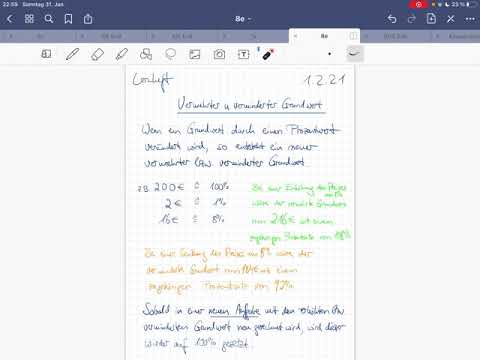 22:59 Sonntag 31. Jan
23 %
8e
8e
Lernheft 1.2.21
Vermehrter u verminderter Grundwert
Wenn ein Grundwert durch einen Prozentwert
verändert wird, so entsteht ein neuer
vermehrter bzw. verminderter Grundwert.
z.B. 200€ ≙ 100%
2€ ≙ 1%
16€ ≙ 8%
Bei einer Erhöhung des Preises
um 8%
wäre der vermehrte Grundwert
nun 216€ mit einem
zugehörigen Prozentsatz von 108%
Bei einer Senkung des Preises um 8% wäre der
verminderte Grundwert nun 184€ mit einem
zugehörigen Prozentsatz von 92%.
Sobald in einer neuen Aufgabe mit dem erhöhten bzw.
verminderten Grundwert neu gerechnet wird, wird dieser
wieder auf 100% gesetzt.